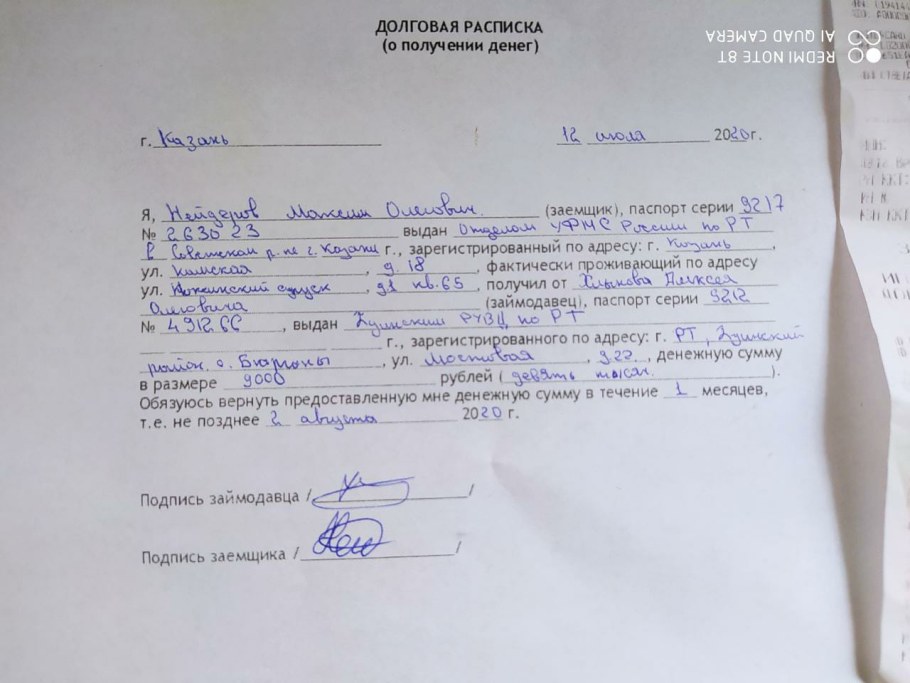 ДОЛГОВАЯ РАСПИСКА
(о получении денег)
REDMI NOTE 8T
AI QUAD CAMERA
г. Казань 12 июля 2020г.
Я, Нейдеров Максим Олегович (заемщик), паспорт серии 9217
№ 263023 выдан Отделом УФМС России по РТ
в Советском р-не г. Казани г., зарегистрированный по адресу: г. Казань,
ул. Камская, д. 18, фактически проживающий по адресу
ул. спуск, д1 кв.65, получил от Хлынова Алексея
Олеговича (займодавец), паспорт серии 9212
№ 491266, выдан РУВД по РТ
г., зарегистрированного по адресу: г. РТ,
район. с. , ул. Мостовая, д.27, денежную сумму
в размере 9000 рублей (девять тысяч).
Обязуюсь вернуть предоставленную мне денежную сумму в течение 1 месяцев,
т.е. не позднее 2 августа 2020 г.
Подпись займодавца / /
Подпись заемщика / /